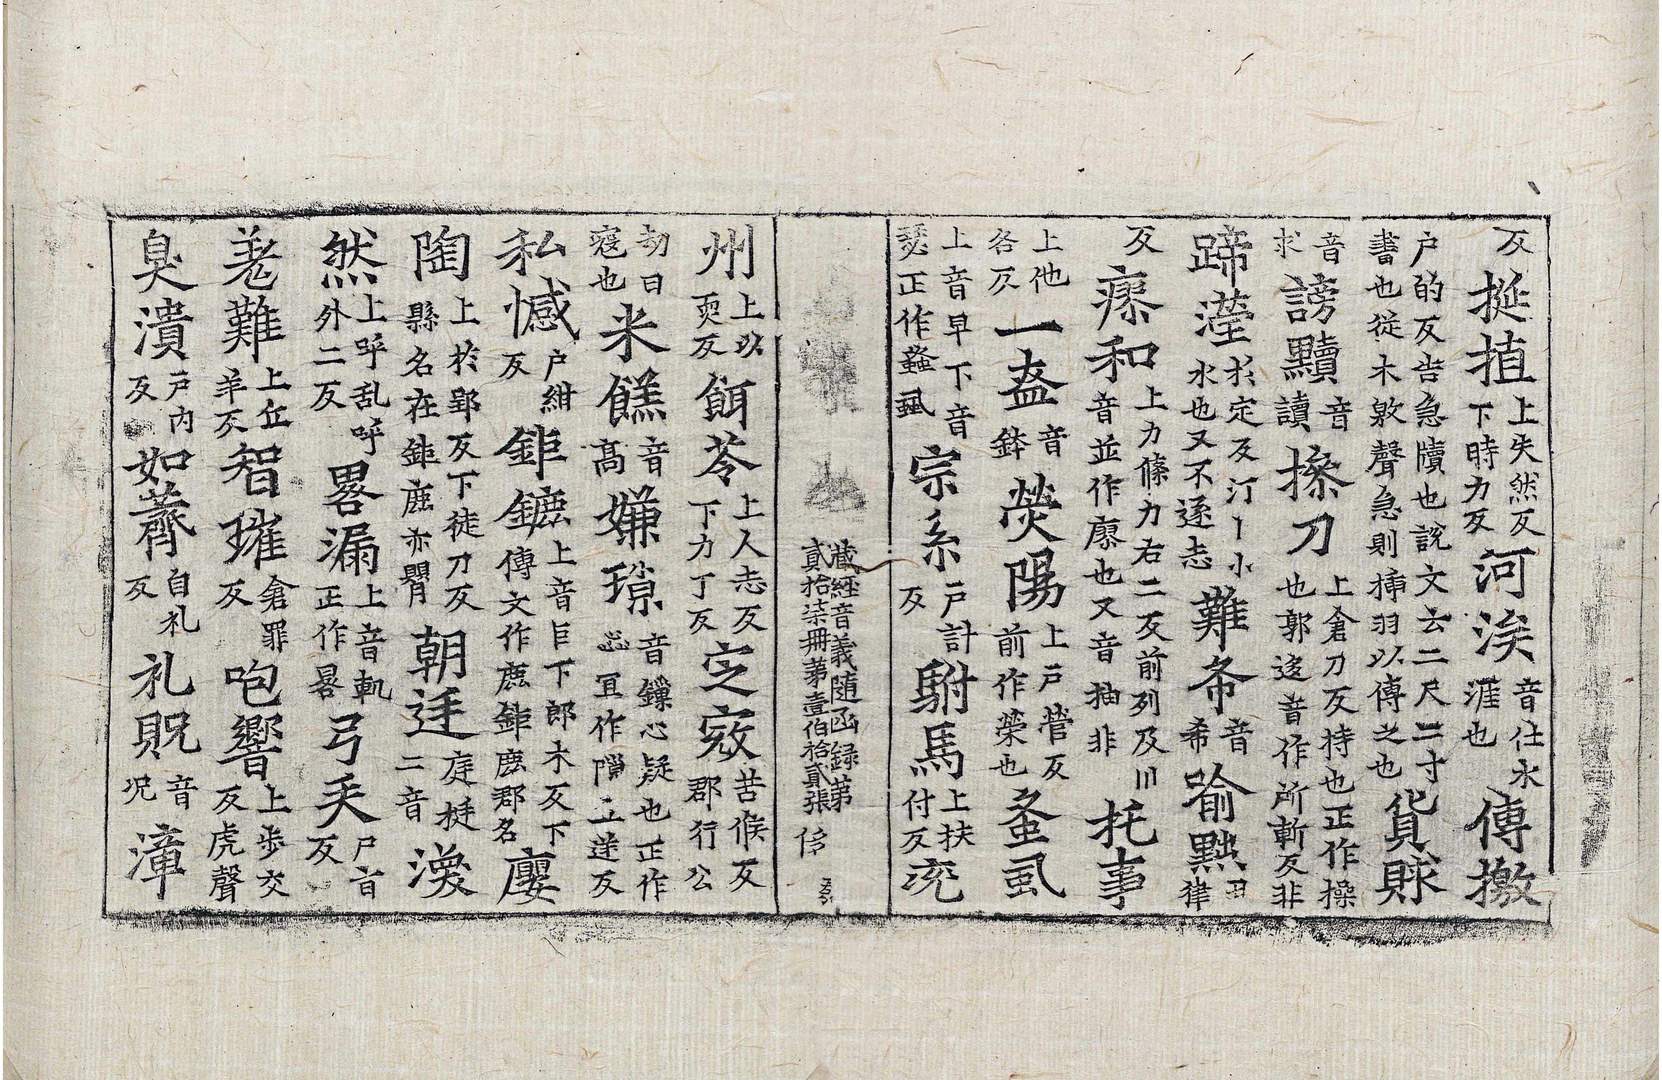 反挻埴上失然反下時力反河涘音仕水涯也傳撽
户的反告急牘也說文云二尺二寸書也從木敫聲急則揷羽以傳之也貨賕
音求謗黷音讀㨶刀上倉刀反持也正作操也郭迻音作所斬反非
蹄瀅於定反汀丨小水也又不遂志難㠻音希喻黜丑律
反瘵和上力條力右二反前列及川音並作廖也又音抽非托事
上他各反一盔音鉢熒陽上户營反前作榮也蚤虱
上音早下音瑟正作蚤虱宗系户計反駙馬上扶付反㳘
藏經音義隨函録第貳拾柒冊第壹伯拾貳張 侈
州上以耎反餌苓上人志反下力丁反㝎𡨥苦候反郡行公
劫曰寇也米餻音高嫌𤨏音鏁心疑也正作㥯冝作隙丘逆反
私憾户紺反鉅鏕上音巨下郎木反下傳文作鹿鉅鹿郡名廮
陶上於郢反下徒刀反縣名在鉅鹿亦𦡱朝迋庭挺二音渙
然上呼乱呼外二反晷漏上音軌正作晷弓㚒尸旨反
羗難上丘羊反智璀倉罪反咆響上步交反虎聲
臭潰户内反如薺自礼反礼貺音况漳